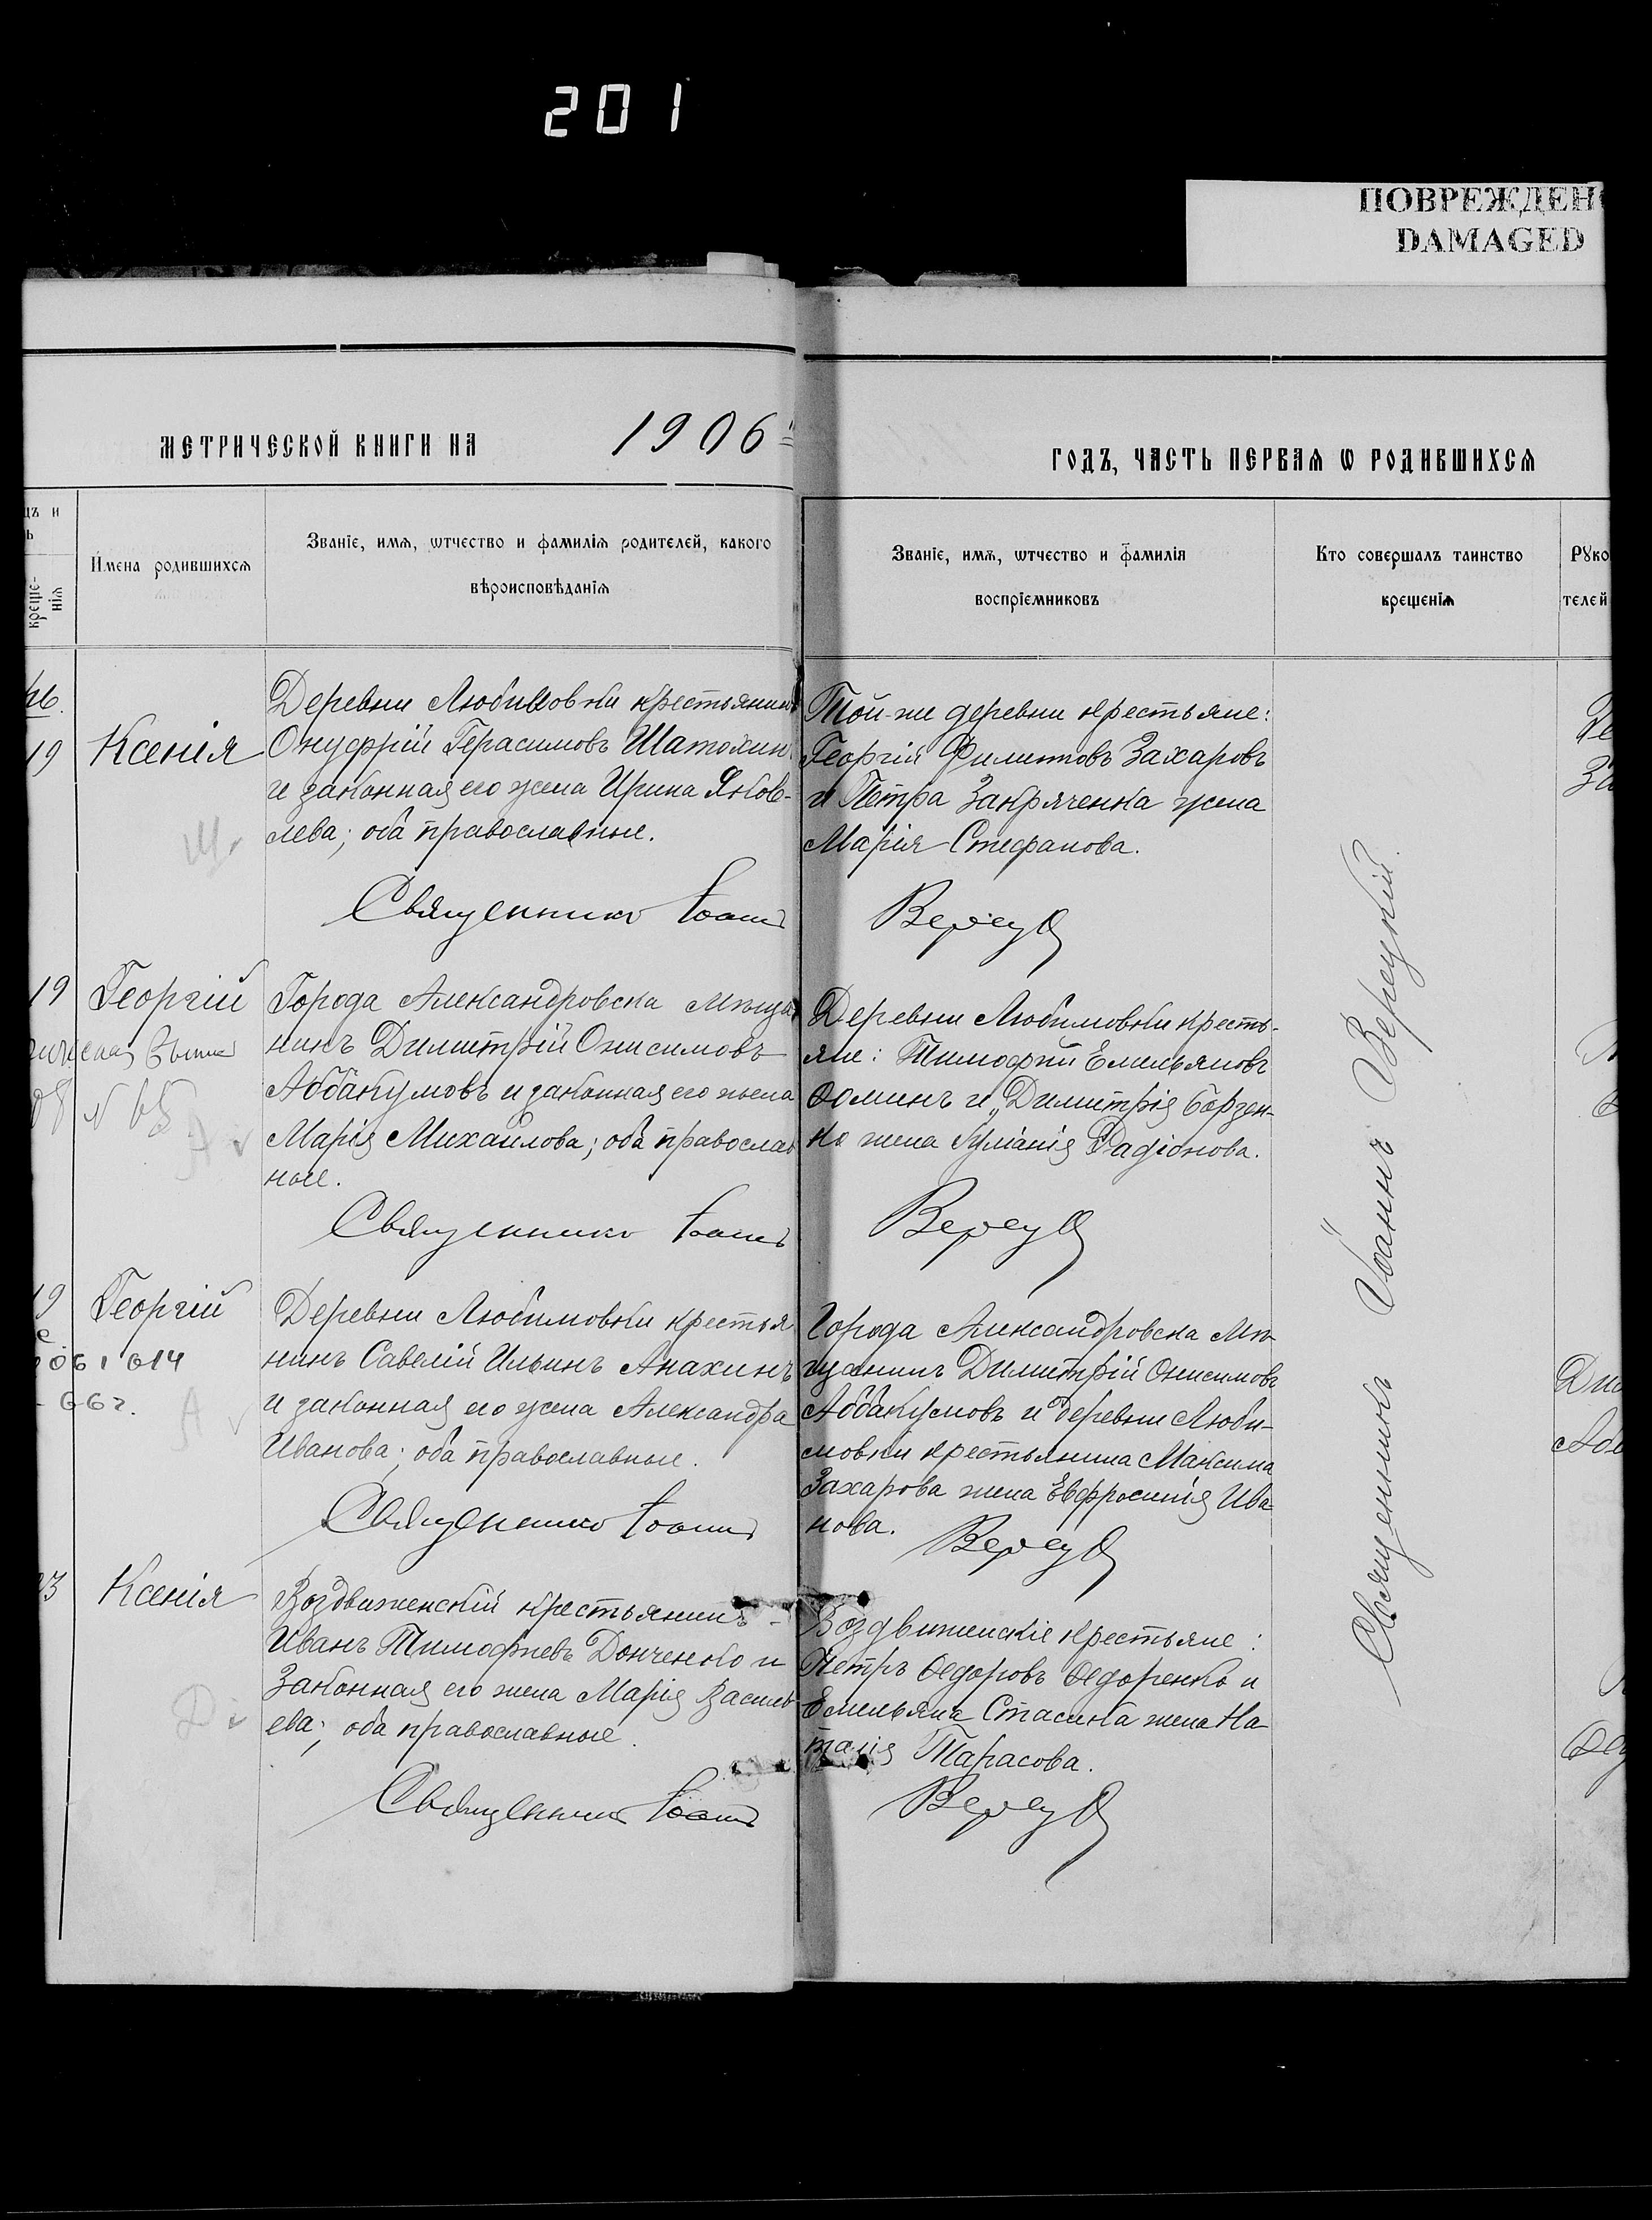 201
ПОВРЕЖДЕНО
DAMAGED
МЕТРИЧЕСКОЙ КНИГИ НА 1906
ГОДЪ, ЧАСТЬ ПЕРВАЯ Ѡ РОДИВШИХСЯ
цъ и
ь
креще-
нія
Имена родившихся
Званіе, имя, ѡтчество и фамилія родителей, какого
вѣроисповѣданія
Званіе, имя, ѡтчество и фамилія
воспріємниковъ
Кто совершалъ таинство
крещенія
Руко
телей
19
Ксенія
Деревни Любимовки крестьянинъ
Онуфрій Герасимовъ Шатохин
и законная его жена Ирина Яков-
лева; оба православные.
Священникъ Іоаннъ
Той-же деревни крестьяне:
Георгій Филиповъ Захаровъ
и Петра Закряченка жена
Марія Стефанова.
Верецк
Ш.
19
Георгій
Города Александровска мѣща
нинъ Димитрій Онисимовъ
Аббакумовъ и законная его жена
Марія Михайлова; оба православ
ные.
Священникъ Іоаннъ
Деревни Любимовки кресть-
яне: Тимофей Емельяновъ
Ѳоминъ и Димитрія Борзен-
ко жена Іуліанія Радіонова.
Верецк
А
19
Георгій
Деревни Любимовки крестья
нинъ Савелій Ильинъ Анахинъ
и законная его жена Александра
Иванова; оба православные.
Священникъ Іоаннъ
Города Александровска мѣ-
щанинъ Димитрій Онисимовъ
Аббакумовъ и деревни Люби-
мовки крестьянина Максима
Захарова жена Евфросинія Ива-
нова.
Верецк
66г.
А
23
Ксенія
Воздвиженскій крестьянинъ -
Иванъ Тимофіевъ Донченко и
законная его жена Марія Василь
ева; оба православные.
Священникъ Іоаннъ
Воздвиженскіе крестьяне:
Петръ Ѳедоровъ Ѳедоренко и
Емельяна Стасика жена На-
талія Тарасова.
Верецк
Д
Священникъ Іоаннъ Верецкій.